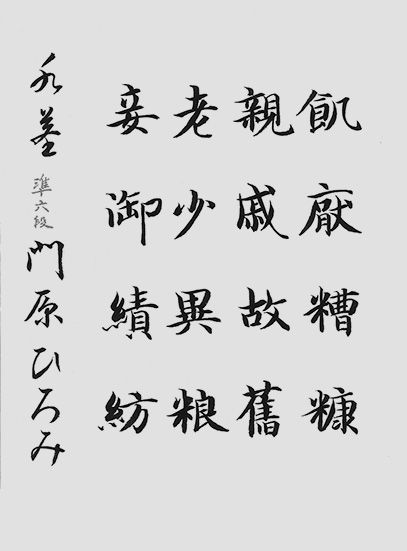 飢厭糟糠
親戚故舊
老少異粮
妾御績紡
準六段
門原ひろみ